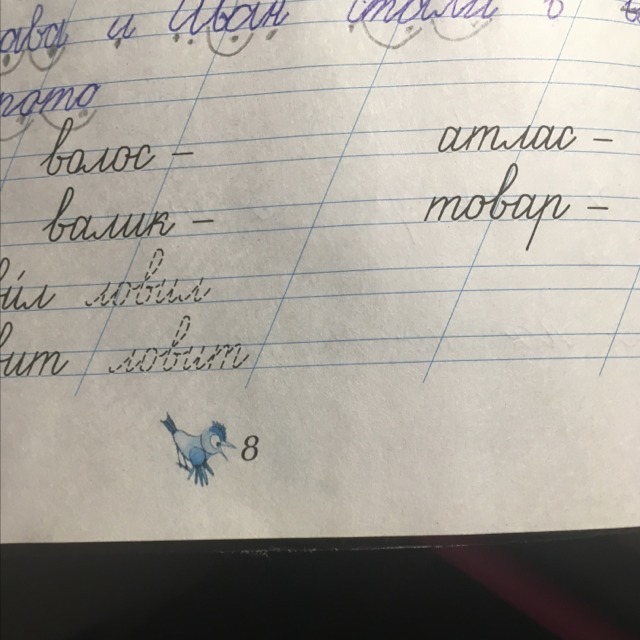 ава и Иван стали в
пото
волос – атлас –
валик – товар –
вил ловил
вит ловит
8